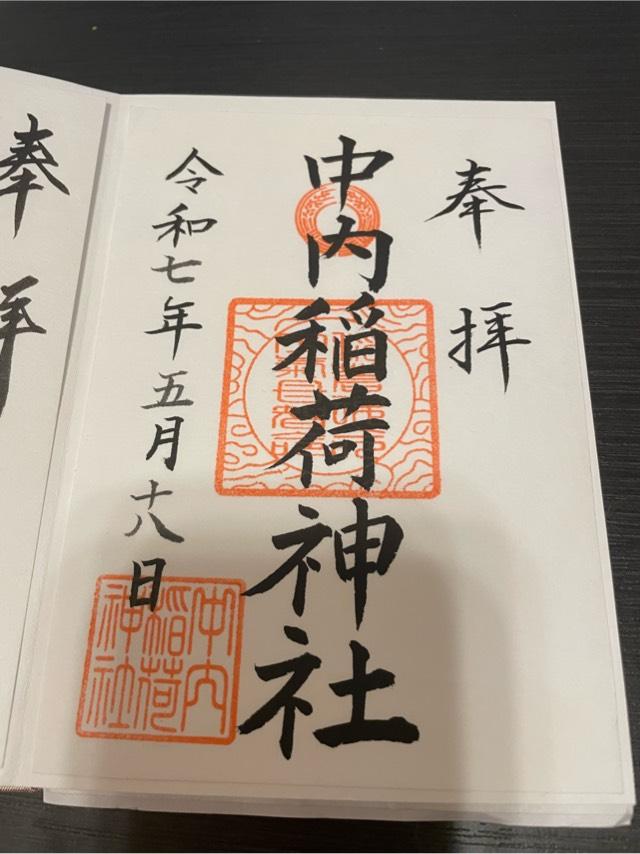 奉拝
中内稲荷神社
令和七年五月十八日
中内
稲荷
神社
奉拝